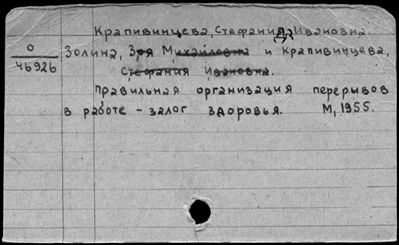 Крапивинцева, Стефанида Ивановна.
О
46926
Золина, Зоя Михайловна и Крапивинцева,
Стефания Ивановна.
Правильная организация перерывов
в работе – залог здоровья. М, 1955.